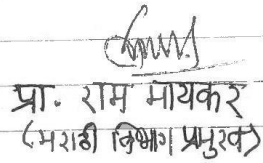 प्रा. राम मायकर
(मराठी विभाग प्रमुख)